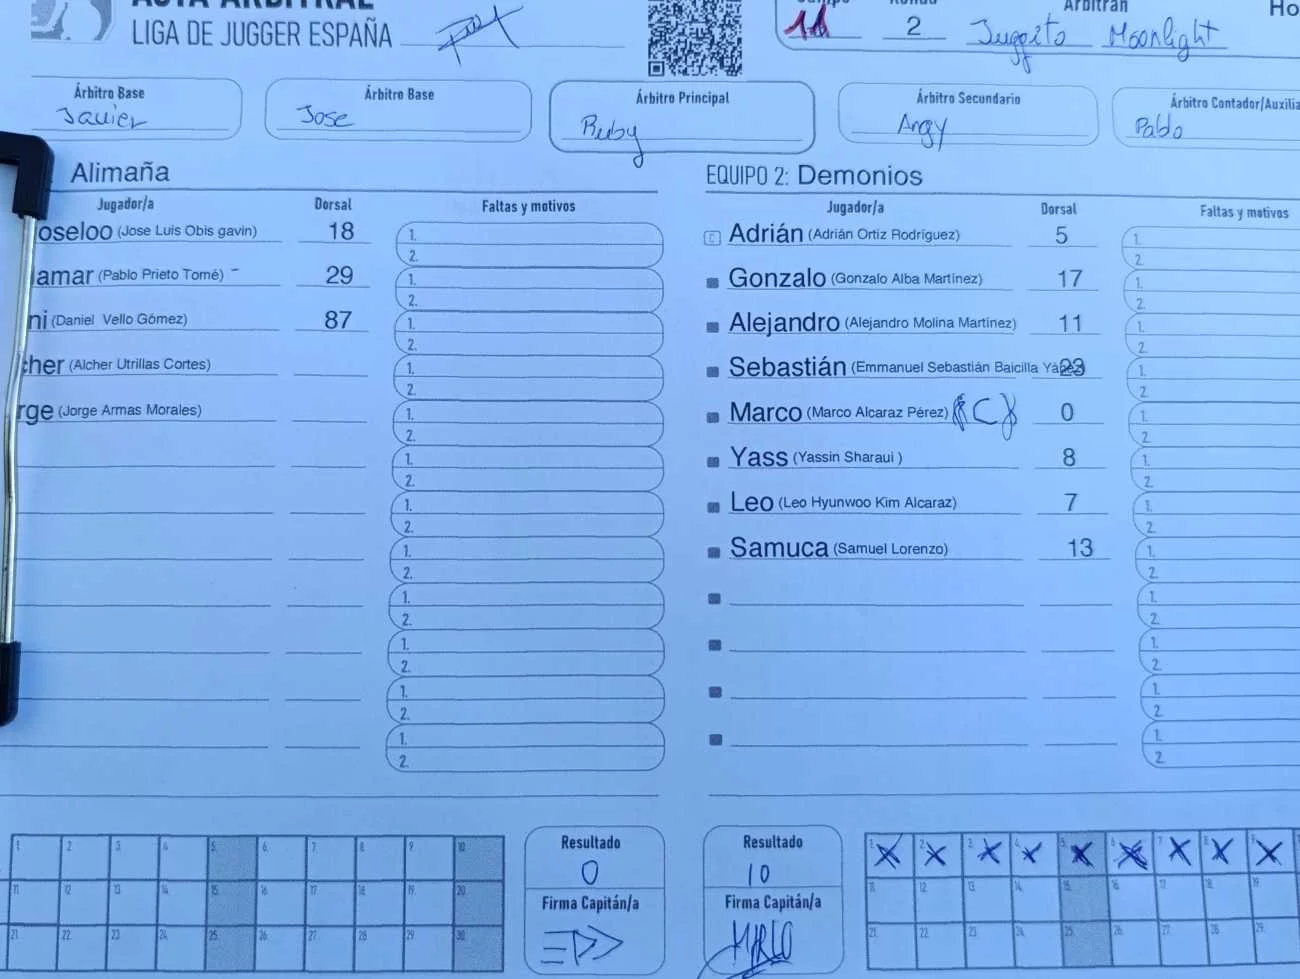 ACTA ARBITRAL
LIGA DE JUGGER ESPAÑA
11 2 Juggito Moonlight
Arbitran
Árbitro Base Árbitro Base Árbitro Principal Árbitro Secundario Árbitro Contador/Auxilia
Javier Jose Ruby Argy Pablo
Alimaña EQUIPO 2: Demonios
Jugador/a Dorsal Faltas y motivos Jugador/a Dorsal Faltas y motivos
oseloo (Jose Luis Obis gavin) 18 1. 2. C Adrián (Adrián Ortiz Rodríguez) 5 1. 2.
amar (Pablo Prieto Tomé) 29 1. 2. Gonzalo (Gonzalo Alba Martínez) 17 1. 2.
ni (Daniel Vello Gómez) 87 1. 2. Alejandro (Alejandro Molina Martínez) 11 1. 2.
cher (Alcher Utrillas Cortes) 1. 2. Sebastián (Emmanuel Sebastián Baicilla 23 1. 2.
rge (Jorge Armas Morales) 1. 2. Marco (Marco Alcaraz Pérez) (C) 0 1. 2.
1. 2. Yass (Yassin Sharaui ) 8 1. 2.
1. 2. Leo (Leo Hyunwoo Kim Alcaraz) 7 1. 2.
1. 2. Samuca (Samuel Lorenzo) 13 1. 2.
1. 2. 1. 2.
1. 2. 1. 2.
1. 2. 1. 2.
1. 2. 1. 2.
1 2 3 4 5 6 7 8 9 10 Resultado Resultado 1 2 3 4 5 6 7 8 9
0 10
11 12 13 14 15 16 17 18 19 20 Firma Capitán/a Firma Capitán/a 11 12 13 14 15 16 17 18 19
21 22 23 24 25 26 27 28 29 30 MARCO 21 22 23 24 25 26 27 28 29